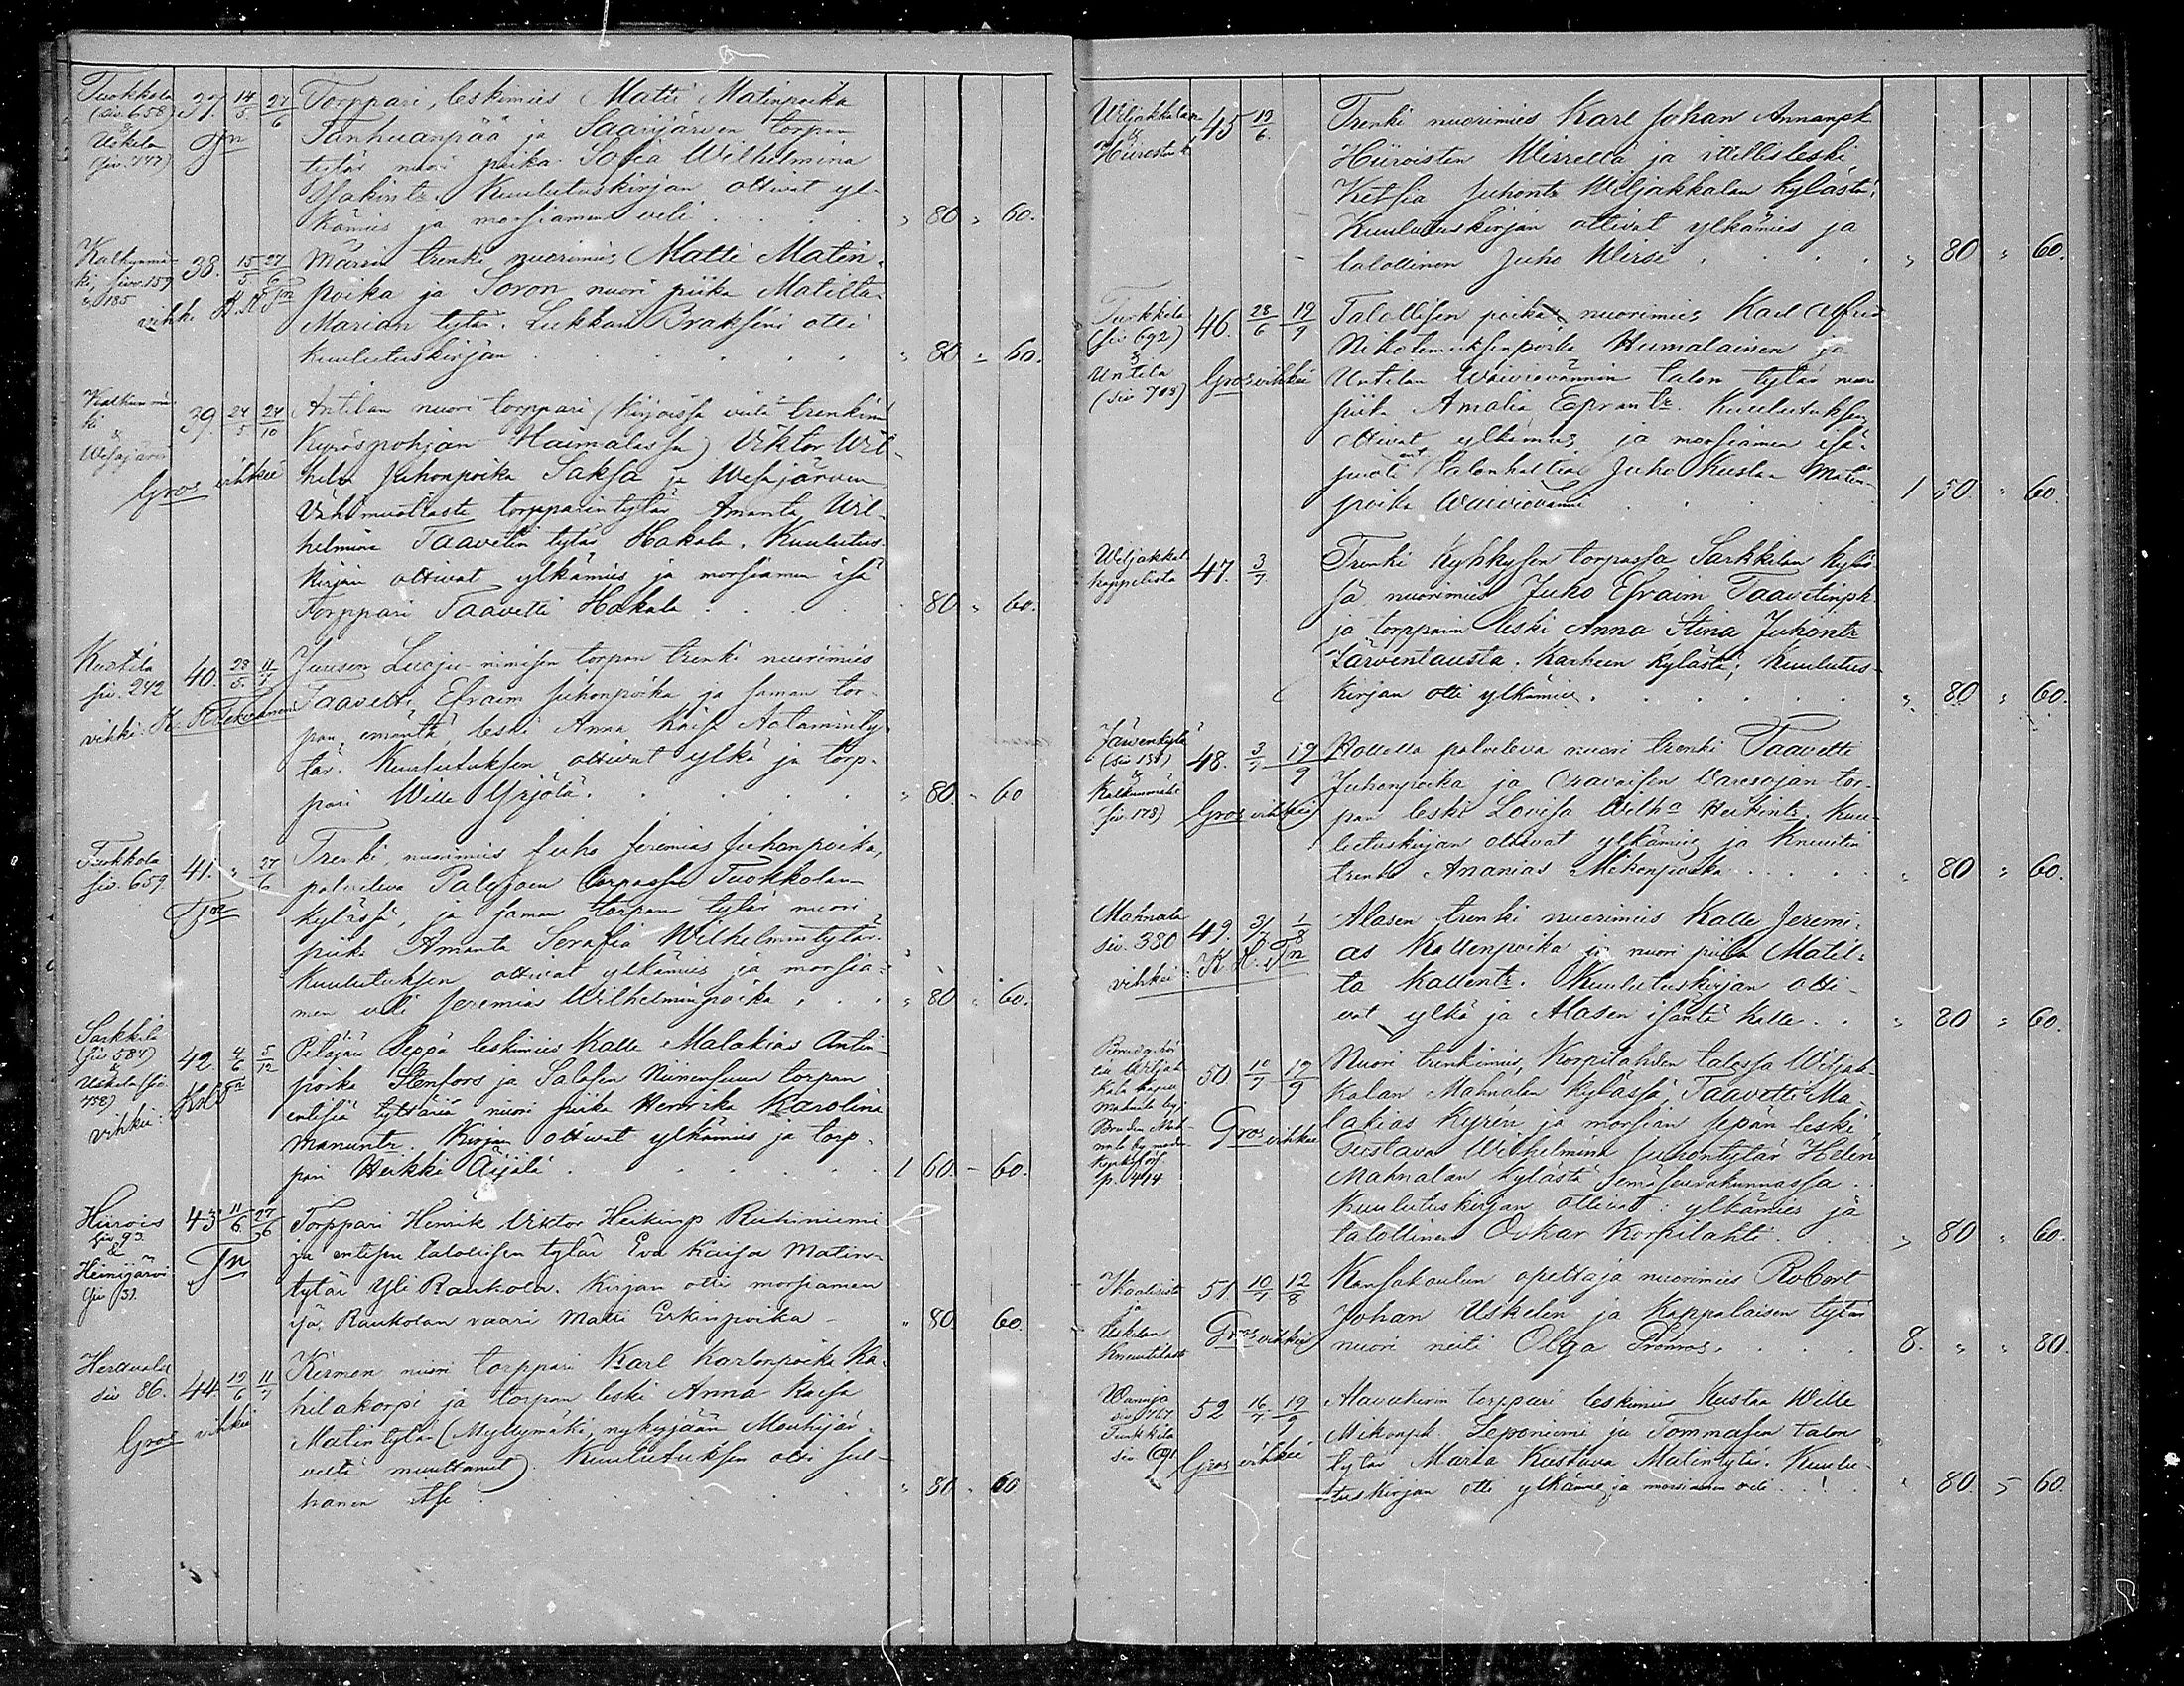 Tuokkola
(siv. 658)
&
Uskela
(siv. 747)
37. 14/5 27/6
Tn
Torppari, leskimies Matti Matinpoika
Tanhuanpää ja Saarijärven torpan
tytär nuori piika Sofia Wilhelmina
Isakintr. Kuulutuskirjan ottivat yl-
kämies ja morsiamen veli . . . " 80 " 60.
Kalkunmä-
ki, siv. 159
" 185
38. 15/5 27/6
vihki K.H. Tn
Märrin trenki nuorimies Matti Matin-
poika ja Soron nuori piika Matilta
Marian tytär. Lukkari Braksèni otti
kuulutuskirjan . . . " 80 " 60.
Kalkunmä-
ki
&
Wesajärvi
39. 24/5 24/10
Gros vihkii
Antilan nuori torppari (kirjoissa vielä trenkinä
Kyröspohjan Haimalassa) Viktor Wil-
helm Juhonpoika Saksa ja Wesajärven
Vähimuotlasta torpparintytär Amanta Wil-
helmina Taavetin tytär Hakala. Kuulutus-
kirjan ottivat ylkämies ja morsiamen isä
Torppari Taavetti Hakala . . . " 80 " 60.
siv. 242
40. 28/5 11/7
vihki: K.
Juusen nimisen torpan trenki nuorimies
Taavetti Efraim Juhonpoika ja saman tor-
pan emäntä, leski Anna Kaisa Aataminty-
tär. Kuulutuksen ottivat ylkä ja torp-
pari Wille Yrjölä . . . " 80 " 60
Tuokkola
siv. 659
41. " 27/6
Tn
Trenki, nuorimies Juho Jeremias Juhonpoika,
palveleva Palojoen torpassa Tuokkolan
kylässä, ja saman torpan tytär nuori
piika Amanta Serafia Wilhelmintytär.
Kuulutuksen ottivat ylkämies ja morsia-
men veli Jeremias Wilhelminpoika . . . " 80 " 60.
Sarkkila
(siv. 584)
&
Uskela (siv.
758)
42. 4/6 5/12
vihkii:
Pitäjän Seppä leskimies Kalle Malakias Antin-
poika Stenfors ja Salosen Niinensuun torpan
entisiä tyttäriä nuori piika Henrika Karolina
Manuntr. Kirjan ottivat ylkämies ja torp-
pari Heikki Äijälä . . . 1 60. - 60.
Hiirois
siv. 93.
&
Heinijärvi
siv. 31.
43. 11/6 27/6
Tn
Torppari Henrik Viktor Heikinp. Riihiniemi
ja entisen talollisen tytär Eva Kaisa Matin-
tytär Yli Raukola. Kirjan otti morsiamen
isä, Raukolan vaari Matti Erkinpoika - " 80 60.
siv. 86.
44. 19/6 11/7
Gros vihkii
Kirmon nuori torppari Karl Karlonpoika Ka-
hilakorpi ja torpan leski Anna Kaisa
Matintytär (Myllymäki, nykyjään Mouhijär-
veltä muuttanut). Kuulutuksen otti sul-
hanen itse . . . " 80 " 60
Wiljakkalan
&
45 19/6
Trenki nuorimies Karl Johan Annanpk
Hiiroisten Wirreltä ja itellisleski
Ketsia Juhontr Wiljakkalan kylästä;
Kuulutuskirjan ottivat ylkämies ja
talollinen Juho Wirsi . . . " 80 " 60.
Turkkila
(siv. 692)
&
Untila
(siv 708)
46. 28/6 19/9
Gros vihkii
Talollisen poika, nuorimies Karl Alfred
Nikotemuksenpoika Humalainen ja
Untilan Waiviovännin talon tytär nuori
piika Amalia Eprantr. Kuulutuksen
ottivat ylkämies ja morsiamen isä-
puoli ent. talonhaltia Juho Kustaa Matin-
poika Waiviovänni . . . 1 50 " 60.
Wiljakkal.
kappelista
47. 3/7
Trenki Kyhkysen torpassa Sarkkilan kyläs-
sä nuorimies Juho Efraim Taavetinpk
ja torpparin leski Anna Stina Juhontr
Järventausta. Karheen kylästä; Kuulutus-
kirjan otti ylkämies . . . " 80 " 60.
Järvenkylä
(siv 151)
&
Kalkunmäki
siv. 178)
48. 3/7 19/9
Gros vihkii
palveleva nuori trenki Taavetti
Juhonpoika ja Oravaisen Varesojan tor-
pan leski Lovisa Wilha Heikintr. Kuu-
lutuskirjan ottivat ylkämies ja Knuutin
trenki Ananias Mikonpoika . . . " 80 " 60.
Mahnala
siv. 380
49. 3/7 1/8
vihkii: K.H. Tn
Alasen trenki nuorimies Kalle Jeremi-
as Kallenpoika ja nuori piika Matil-
ta Kallentr. Kuulutuskirjan otti-
vat ylkä ja Alasen isäntä Kalle . . " 80 " 60.
p. 414
50 10/7 19/9
Gros vihkii
Nuori trenkimies, Korpilahden talossa Wiljak-
kalan Mahnalan kylässä, Taavetti Ma-
lakias Kyrén ja morsian sepän leski
Gustava Wilhelmina Juhontytär Helin
Mahnalan kylästä Emäseurakunnassa.
Kuulutuskirjan ottivat: ylkämies ja
talollinen Oskar Korpilahti . . " 80 " 60.
Ikaalisista
ja
Uskelan
51. 10/7 12/8
Gros vihkii
Kansakoulun opettaja nuorimies Robert
Johan Uskelin ja Kappalaisen tytär
nuori neiti Olga Grönros . . . 8. " " 80.
siv. 767
Turkkila
siv. 691
52 16/7 19/9
Gros vihkii
Alavukerin torppari leskimies Kustaa Wille
Mikonpk. Leponiemi ja Tommasen talon
tytär Maria Kustava Matintytär. Kuulu-
tuskirjan otti ylkämies ja morsiamen veli . . " 80. " 60.